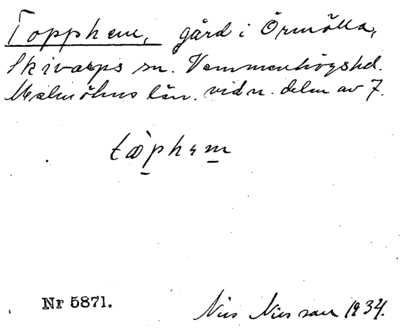 Topphem, gård i Örmölla,
Skivarps sn. Vemmenhögs hd.
Malmöhus län. vid n. delen av 7.
tæp̱hęm̱
Nr 5871.
Nils Nilsson 1934.